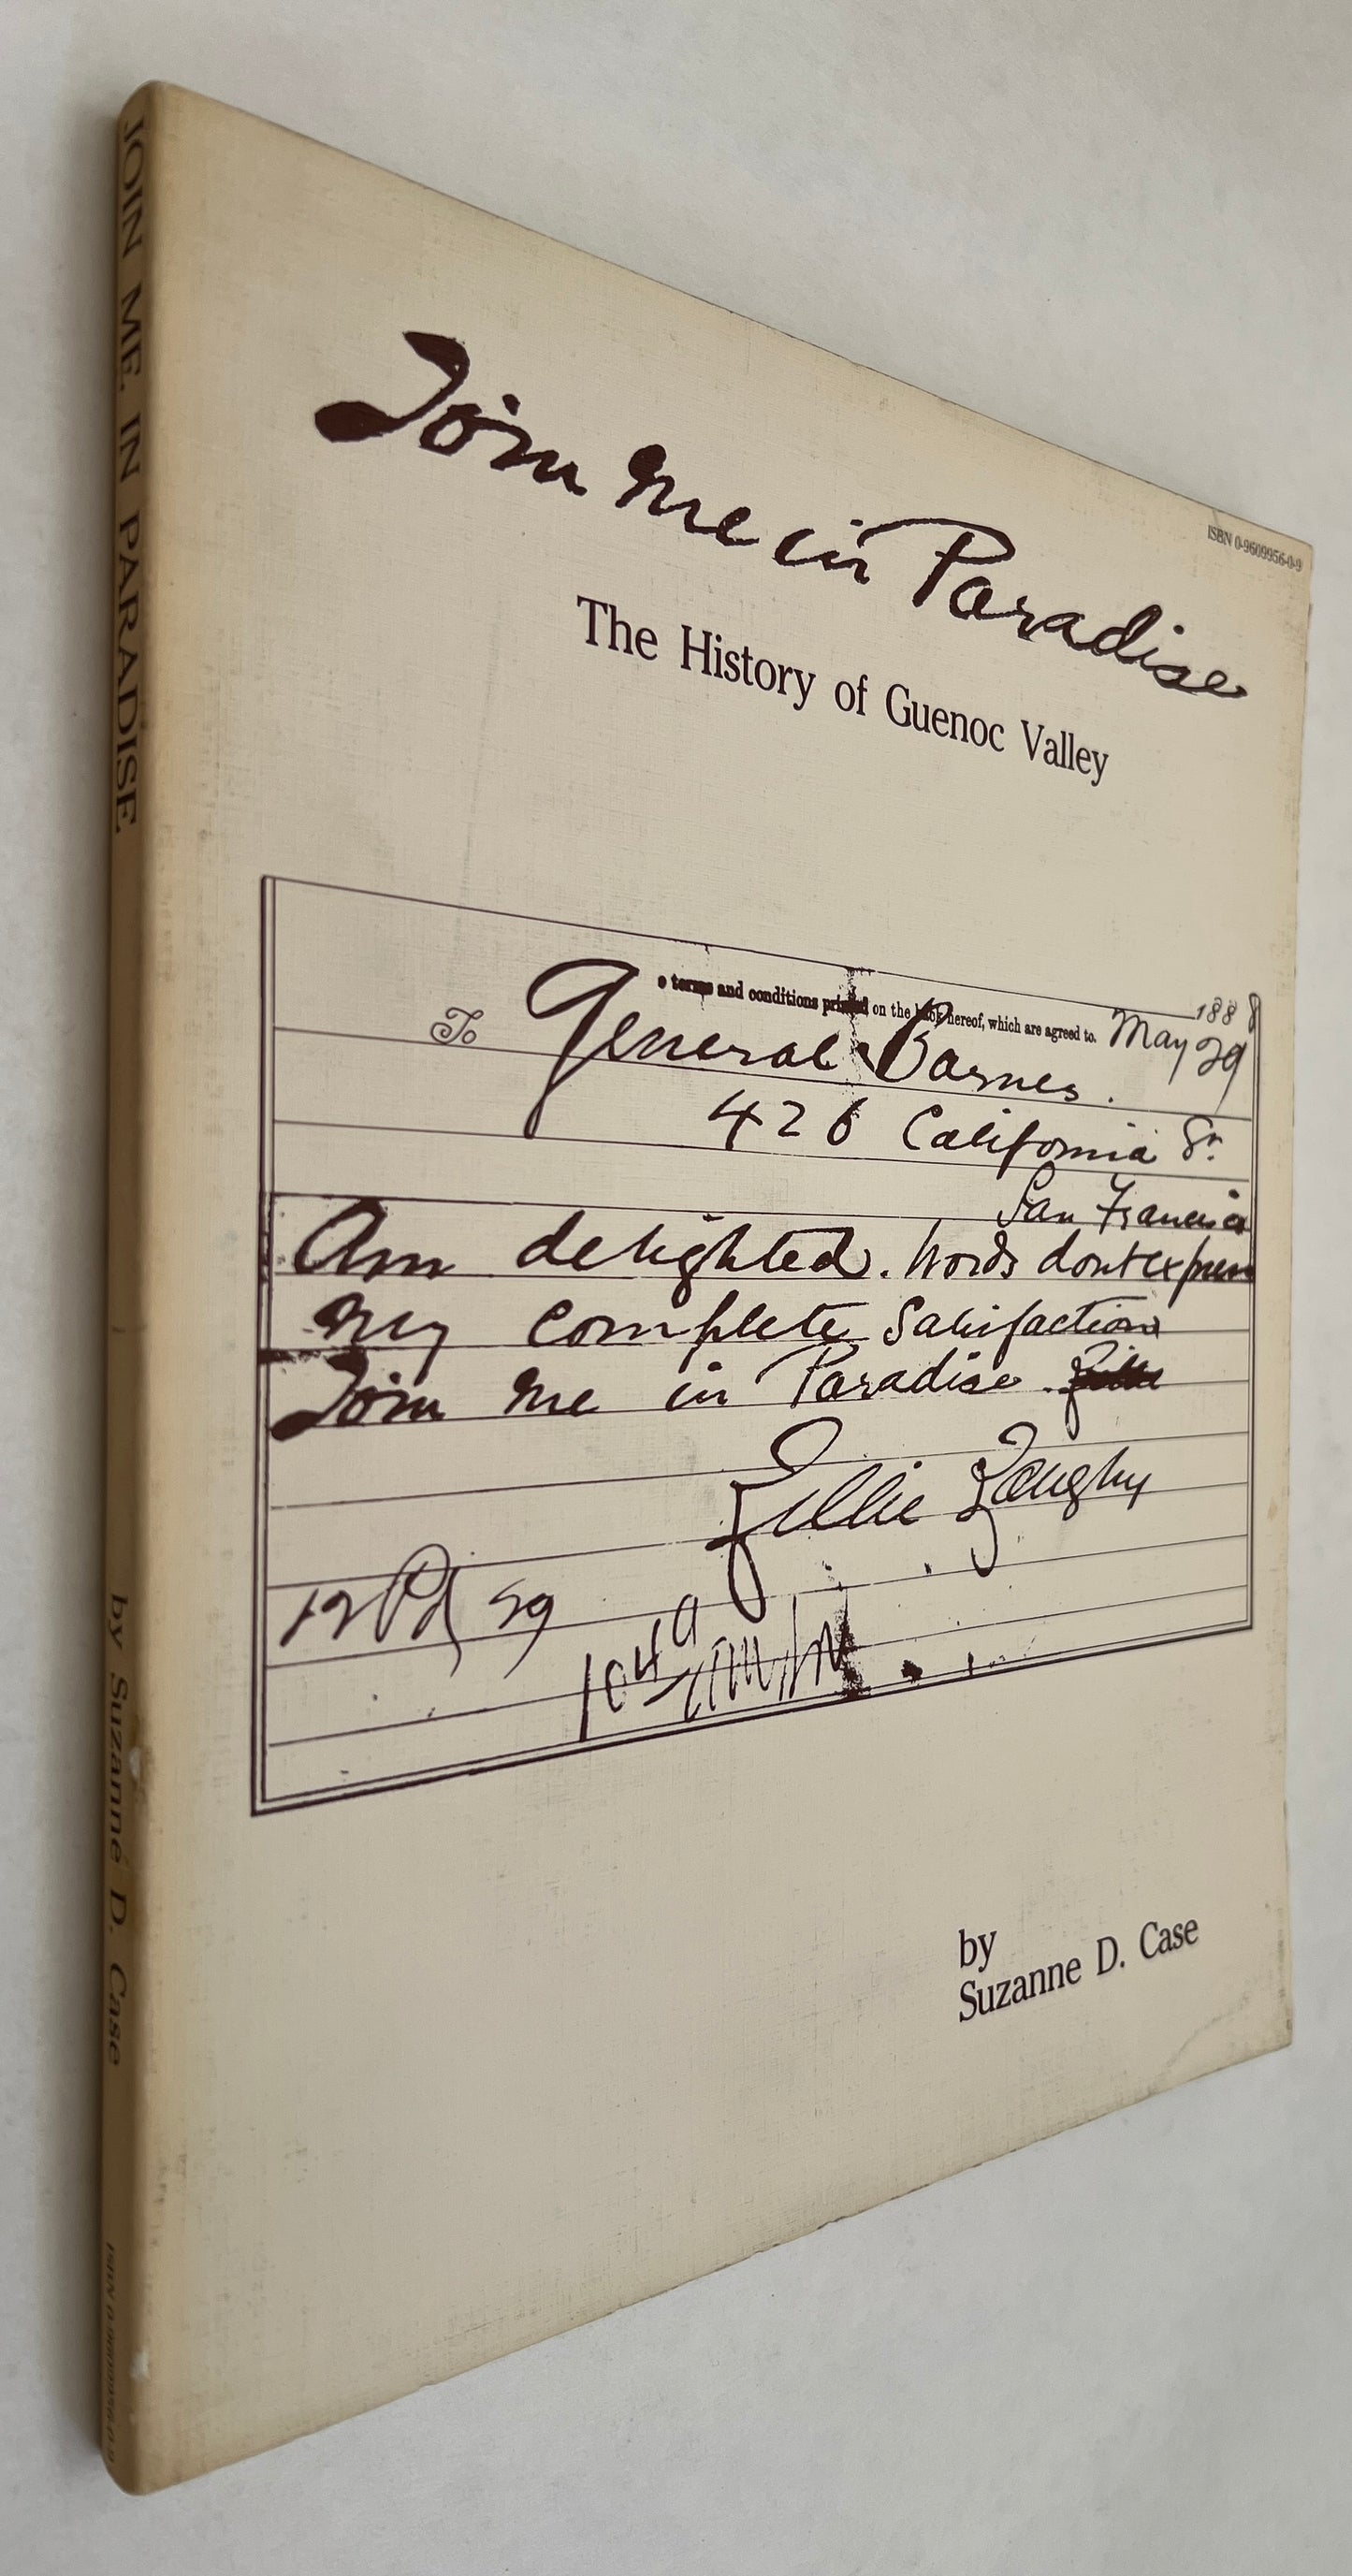 JOIN ME IN PARADISE
by Suzanne D. Case
ISBN 0-9609956-0-9
ISBN 0-9609956-0-9
Join Me in Paradise
The History of Guenoc Valley
terms and conditions printed on the back hereof, which are agreed to.
1888
May 29
To General Barnes.
426 California St.
San Francisco
Am delighted. Words dont express
My complete Satisfaction
Join Me in Paradise.
Lillie Langtry
12 Pd 59
by
Suzanne D. Case